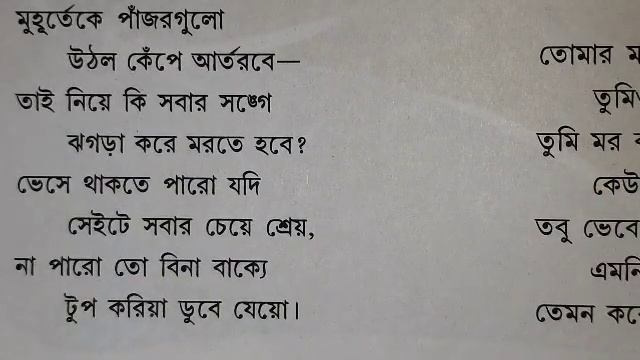 মুহূর্তেকে পাঁজরগুলো
উঠল কেঁপে আর্তরবে—
তাই নিয়ে কি সবার সঙ্গে
ঝগড়া করে মরতে হবে?
ভেসে থাকতে পারো যদি
সেইটে সবার চেয়ে শ্রেয়,
না পারো তো বিনা বাক্যে
টুপ করিয়া ডুবে যেয়ো।
তোমার
তুমি
তুমি মর
কেউ
তবু ভেবে
এমনি
তেমন